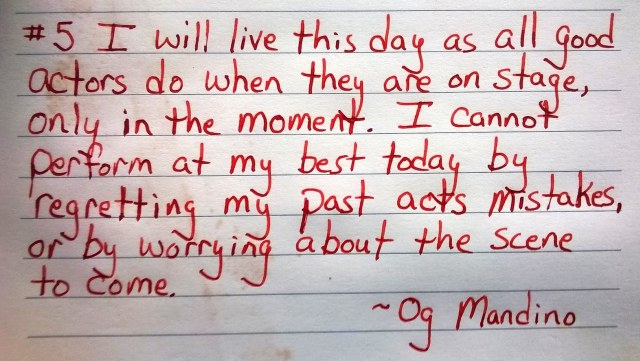 #5 I will live this day as all good
actors do when they are on stage,
only in the moment. I cannot
perform at my best today by
regretting my past acts mistakes,
or by worrying about the scene
to come.
~Og Mandino